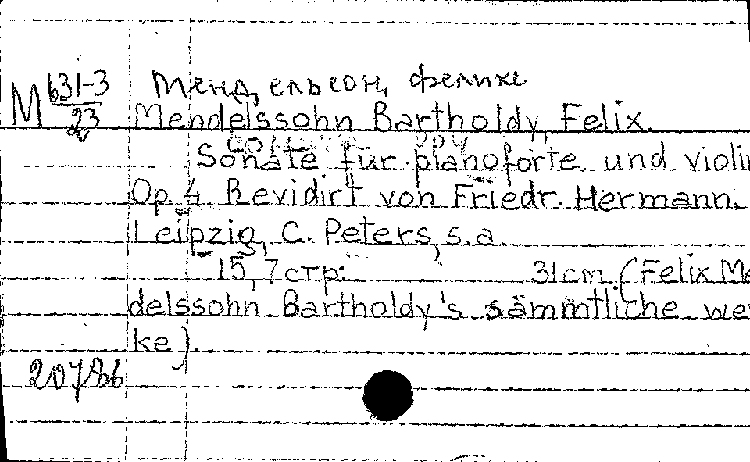 М 631-3
23
Мендельсон, Феликс
Mendelssohn Bartholdy, Felix.
Sonate für pianoforte und violin
Op. 4. Revidirt von Friedr. Hermann.
Leipzig, C. Peters, s.a.
15, 7 стр. 31 cm. (Felix Me
delssohn Bartholdy's sämmtliche wer
ke).